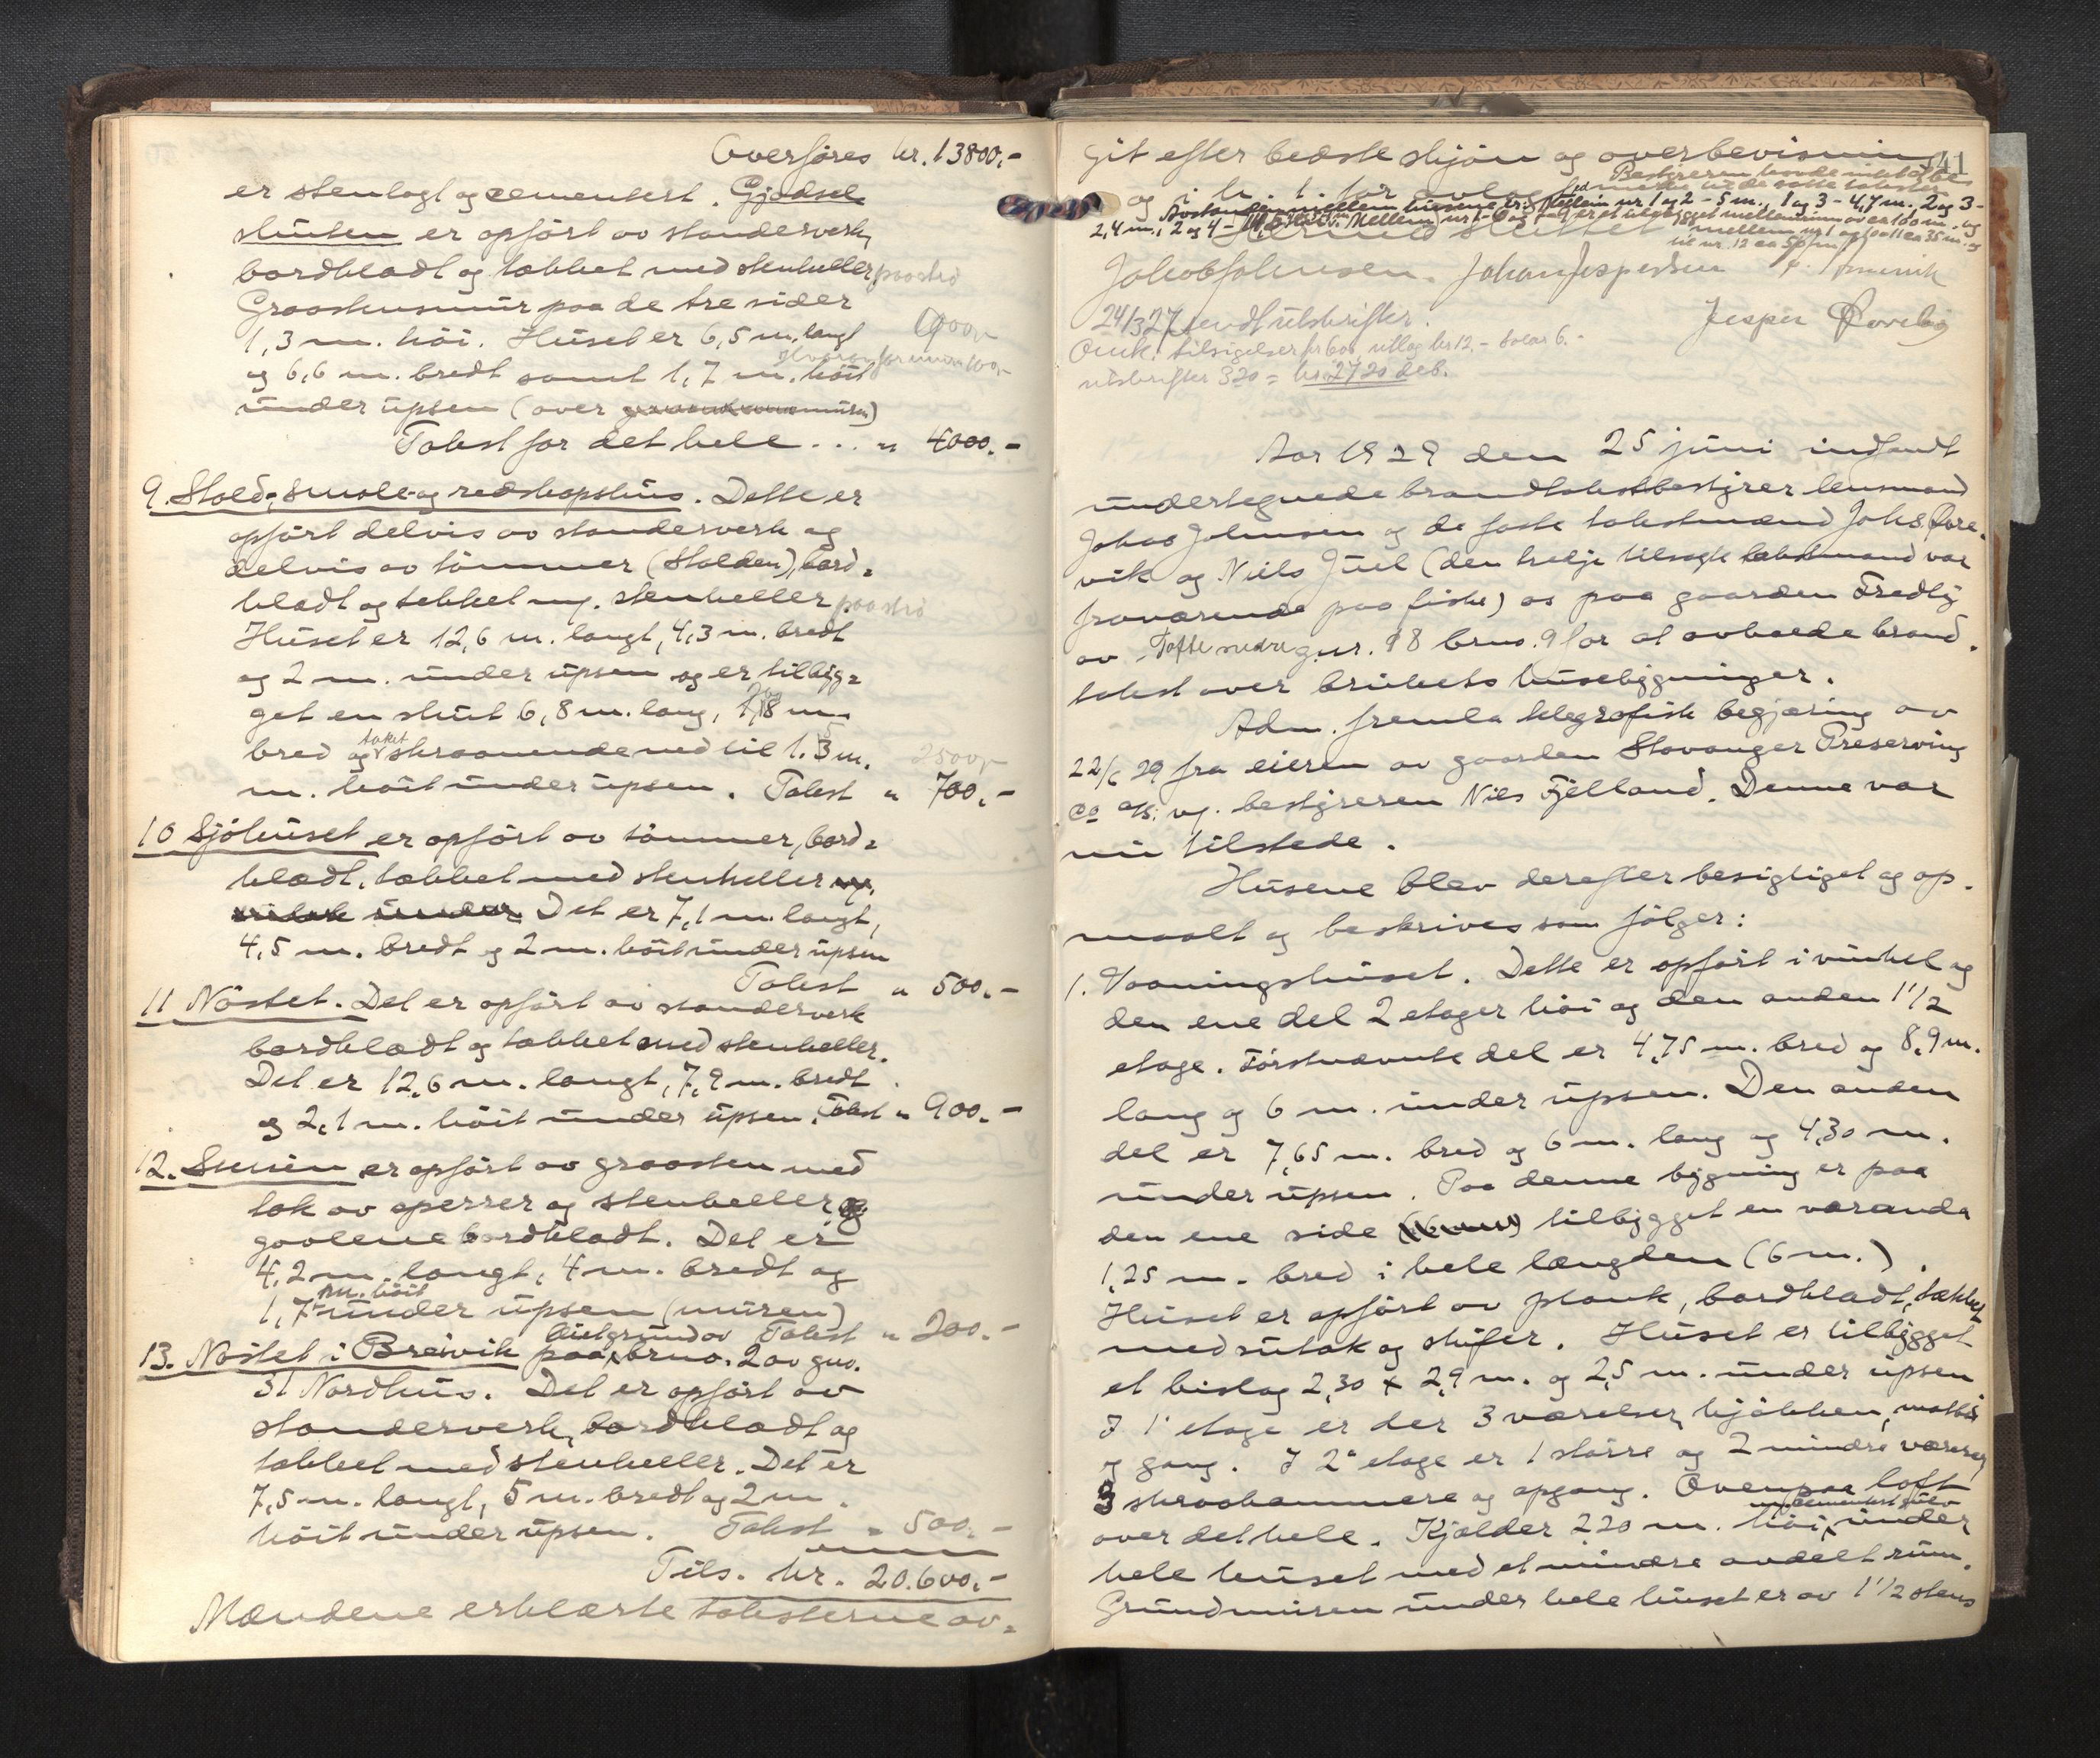 Overføres kr. 13800.-
er stenlagt og cementert. Gjødsel
skuten er opført av standerverk,
bordklædt og tækket med stenheller paa stød
Graastensmur paa de tre sider
1,3 m. høi. Huset er 6,5 m. langt
og 6,6 m. bredt samt 1,7 m. høit
hvorav for muren 100,-
under upsen (over muren)
Takst for det hele ... " 4000.-
9. Stald-, smale- og redskapshus. Dette er
opført delvis av standerverk og
delvis av tømmer (Stalden), bord-
klædt og tekket m/. stenheller paa stø
Huset er 12,6 m. langt, 4,3 m. bredt
og 2 m. under upsen og er tilbyg-
get en skut 6,8 m. lang, 1,8 m.
bred og taket skraanende ned til 1.3 m. 2500,-
m. høit under upsen. Takst " 700.-
10 Sjøhuset er opført av tømmer, bord-
klædt, tækket med stenheller
Det er 7,1 m. langt,
4,5 m. bredt og 2 m. høit under upsen
Takst " 500.-
11 Nøstet. Det er opført av standerverk
bordklædt og tækket med stenheller.
Det er 12,6 m. langt, 7,9 m. bredt
og 2,1 m. høit under upsen. Takst " 900.-
12. Smien er opført av graasten med
tak av sperrer og stenheller og
gavlene bordklædt. Det er
4,2 m. langt, 4 m. bredt og
1,7 m. høit under upsen (muren)
Takst " 200.-
13. Nøstet i Breivik paa leiet grund av bruo. 2 av gno.
51 Nordhus. Det er opført av
standerverk, bordklædt og
tækket med stenheller. Det er
7,5 m. langt, 5 m. bredt og 2 m.
høit under upsen. Takst " 500.-
Tils. kr. 20.600.-
Mændene erklærte taksterne av-
41
git efter bedste skjøn og overbevisning
Bestyreren havde intet at be-
merke til de satte takster
Avstanden mellem husene er: Mellem nr 1 og 2 - 5 m., 1 og 3 - 4,7 m. 2 og 3 -
2,4 m., 2 og 4 -
mellem nr 1 og 10 og 11 ca 35 m. og
til nr. 12 ca 50 m.
Jakob Johnsen. Johan Jespersen
Jesper
24/3 27 sendt utskrifter.
Omk. tilsigelser kr 600, utlæg kr 12.- Salar 6.-
utskrifter 320 = kr. 2720 deb.
Aar 1929 den 25 juni indfandt
undertegnede brandtakstbestyrer lensmand
Jakob Johnsen og de faste takstmænd Johs. Føre-
vik og Niels Juel (den tredje tilsagte takstmand var
fraværende paa fiske) os paa gaarden Fredly
av Tofte nedre g.nr. 98 brno. 9 for at avholde brand-
takst over brukets husebygninger.
Adm. fremla telegrafisk begjæring av
22/6 29 fra eieren av gaarden Stavanger Preserving
Co A/S. v/. bestyreren Nils Fjelland. Denne var
nu tilstede.
Husene blev derefter besigtiget og op-
maalt og beskrives som følger:
1. Vaaningshuset. Dette er opført i vinkel og
den ene del 2 etager høi og den anden 1 1/2
etage. Førstnævnte del er 4,75 m. bred og 8,9 m.
lang og 6 m. under upsen. Den anden
del er 7,65 m. bred og 6 m. lang og 4,30 m.
under upsen. Paa denne bygning er paa
den ene side tilbygget en varanda
1,25 m. bred i hele længden (6 m.).
Huset er opført av plank, bordklædt, tækket
med sutak og skifer. Huset er tilbygget
et bislag 2,30 x 2,9 m. og 2,5 m. under upsen
I 1' etage er der 3 værelser, kjøkken, matbod
og gang. I 2' etage er 1 større og 2 mindre værelser,
3 skraakammere og opgang. Ovenpaa loft
over det hele. Kjælder 2.20 m. høi, m/ cementert gulv under
hele huset med et mindre avdelt rum.
Grundmuren under hele huset er av 1 1/2 stens